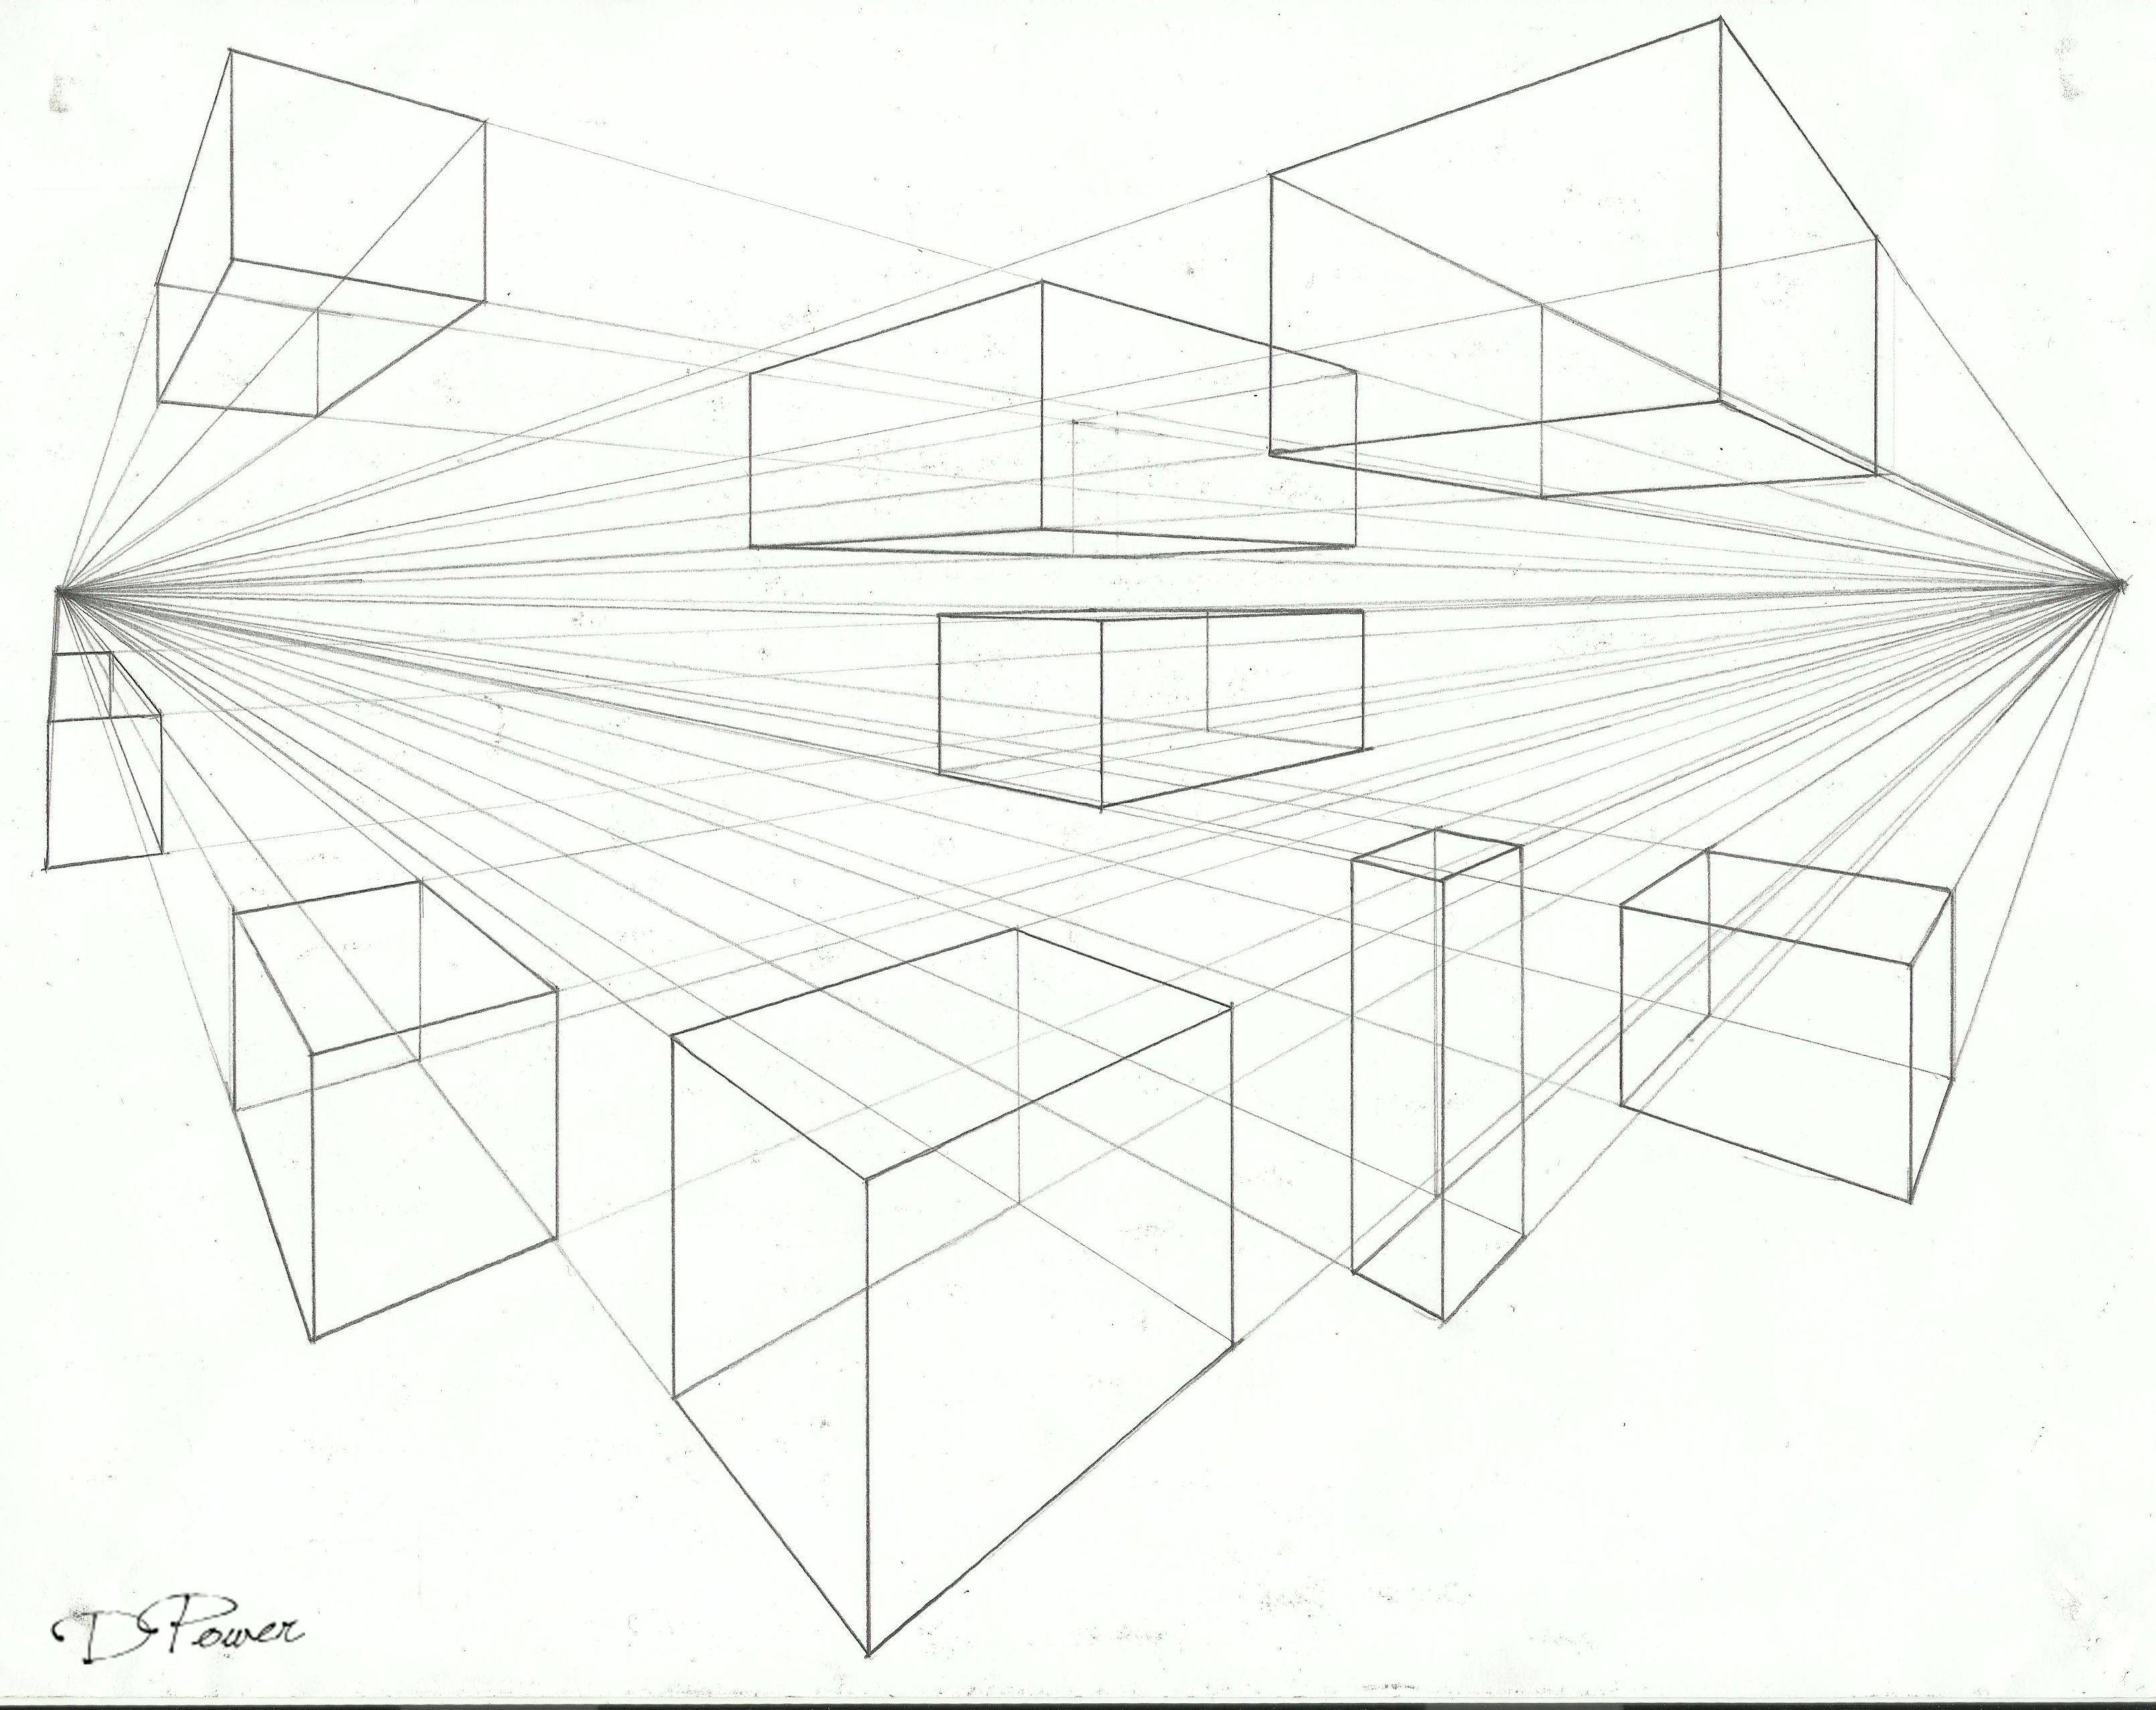 D Power